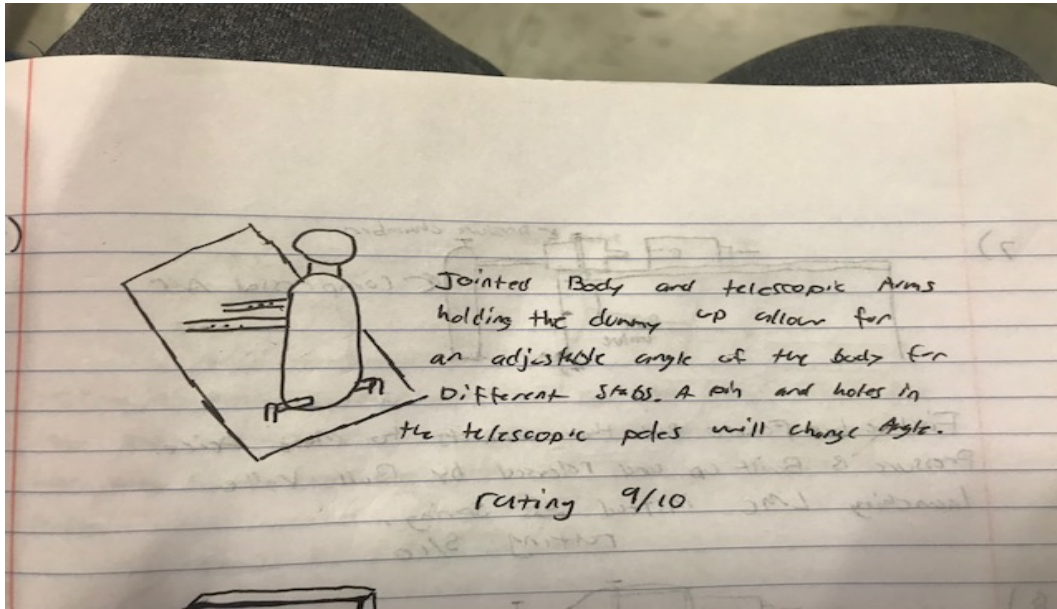 )
Jointed Body and telescopic Arms
holding the dummy up allow for
an adjustable angle of the body for
Different Stabs. A pin and holes in
the telescopic poles will change Angle.
rating 9/10